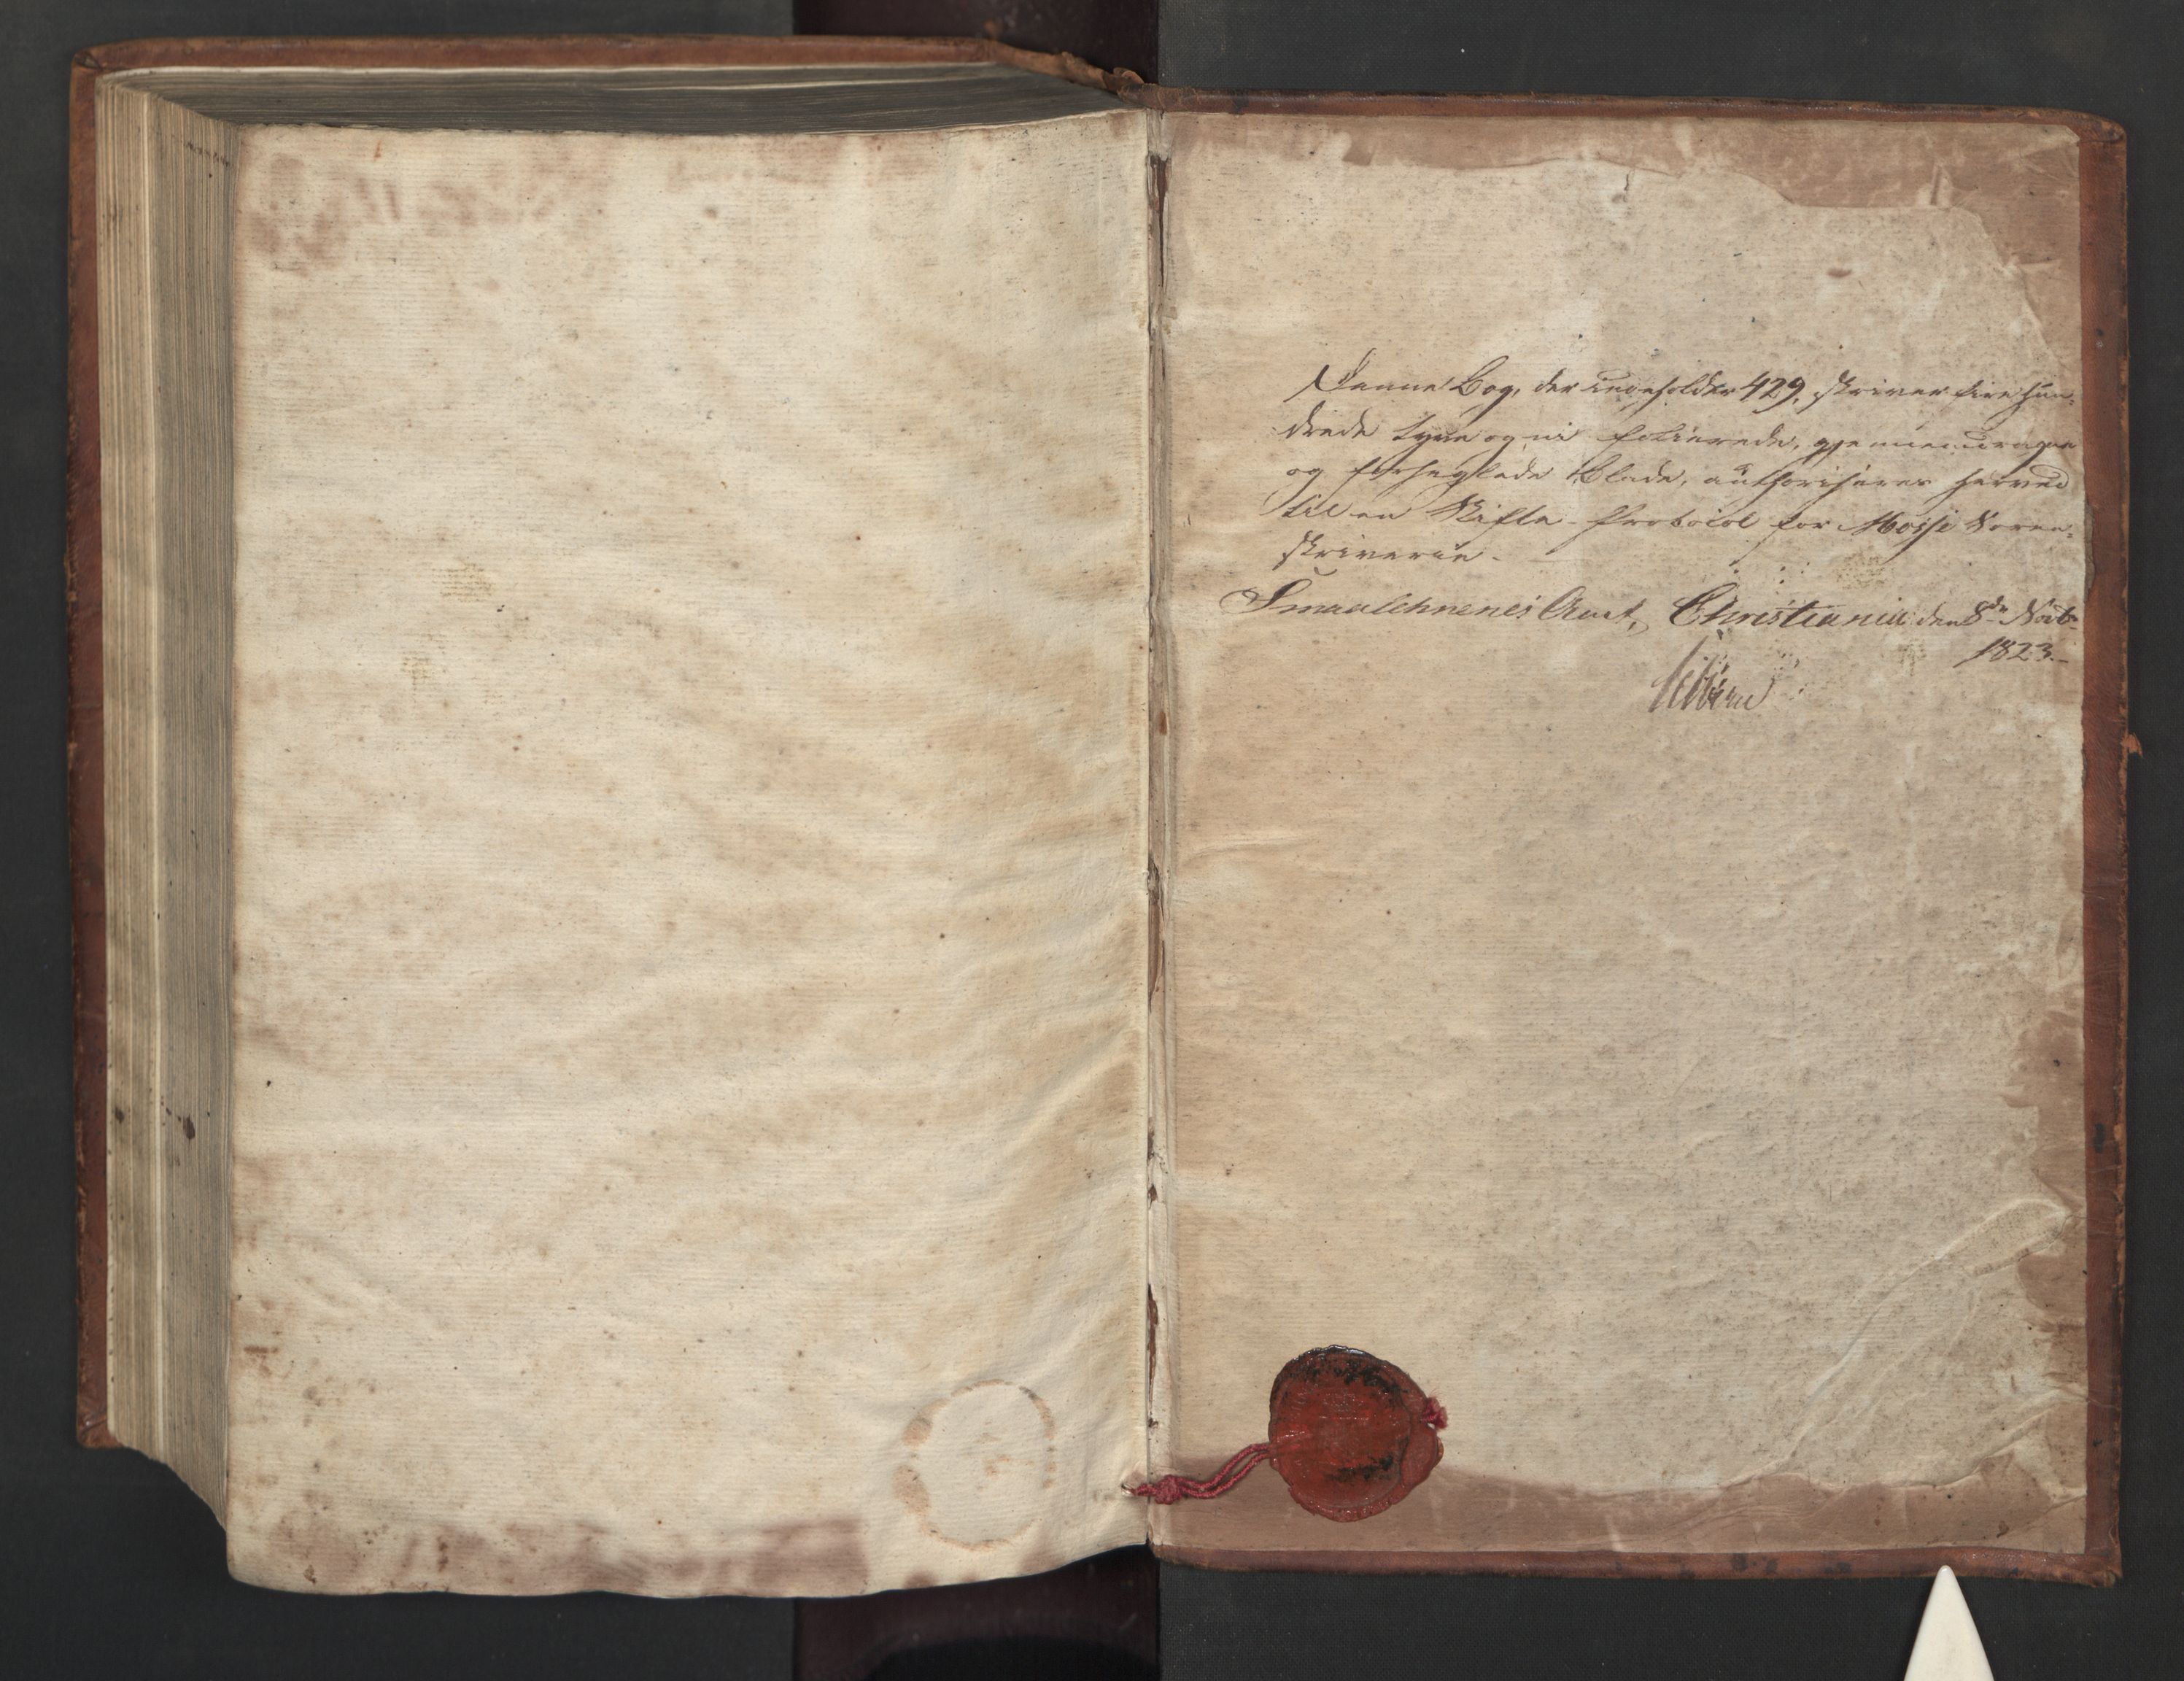 Denne Bog, der indeholder 429, skriver fire hun-
drede tyve og ni folierede, gjennemdragne
og forseglede Blade, authoriseres herved
til en Skifte-Protocol for Mosse Soren-
skriverie.
Smaalehnenes Amt, Christiania den 8de Novb
1823.